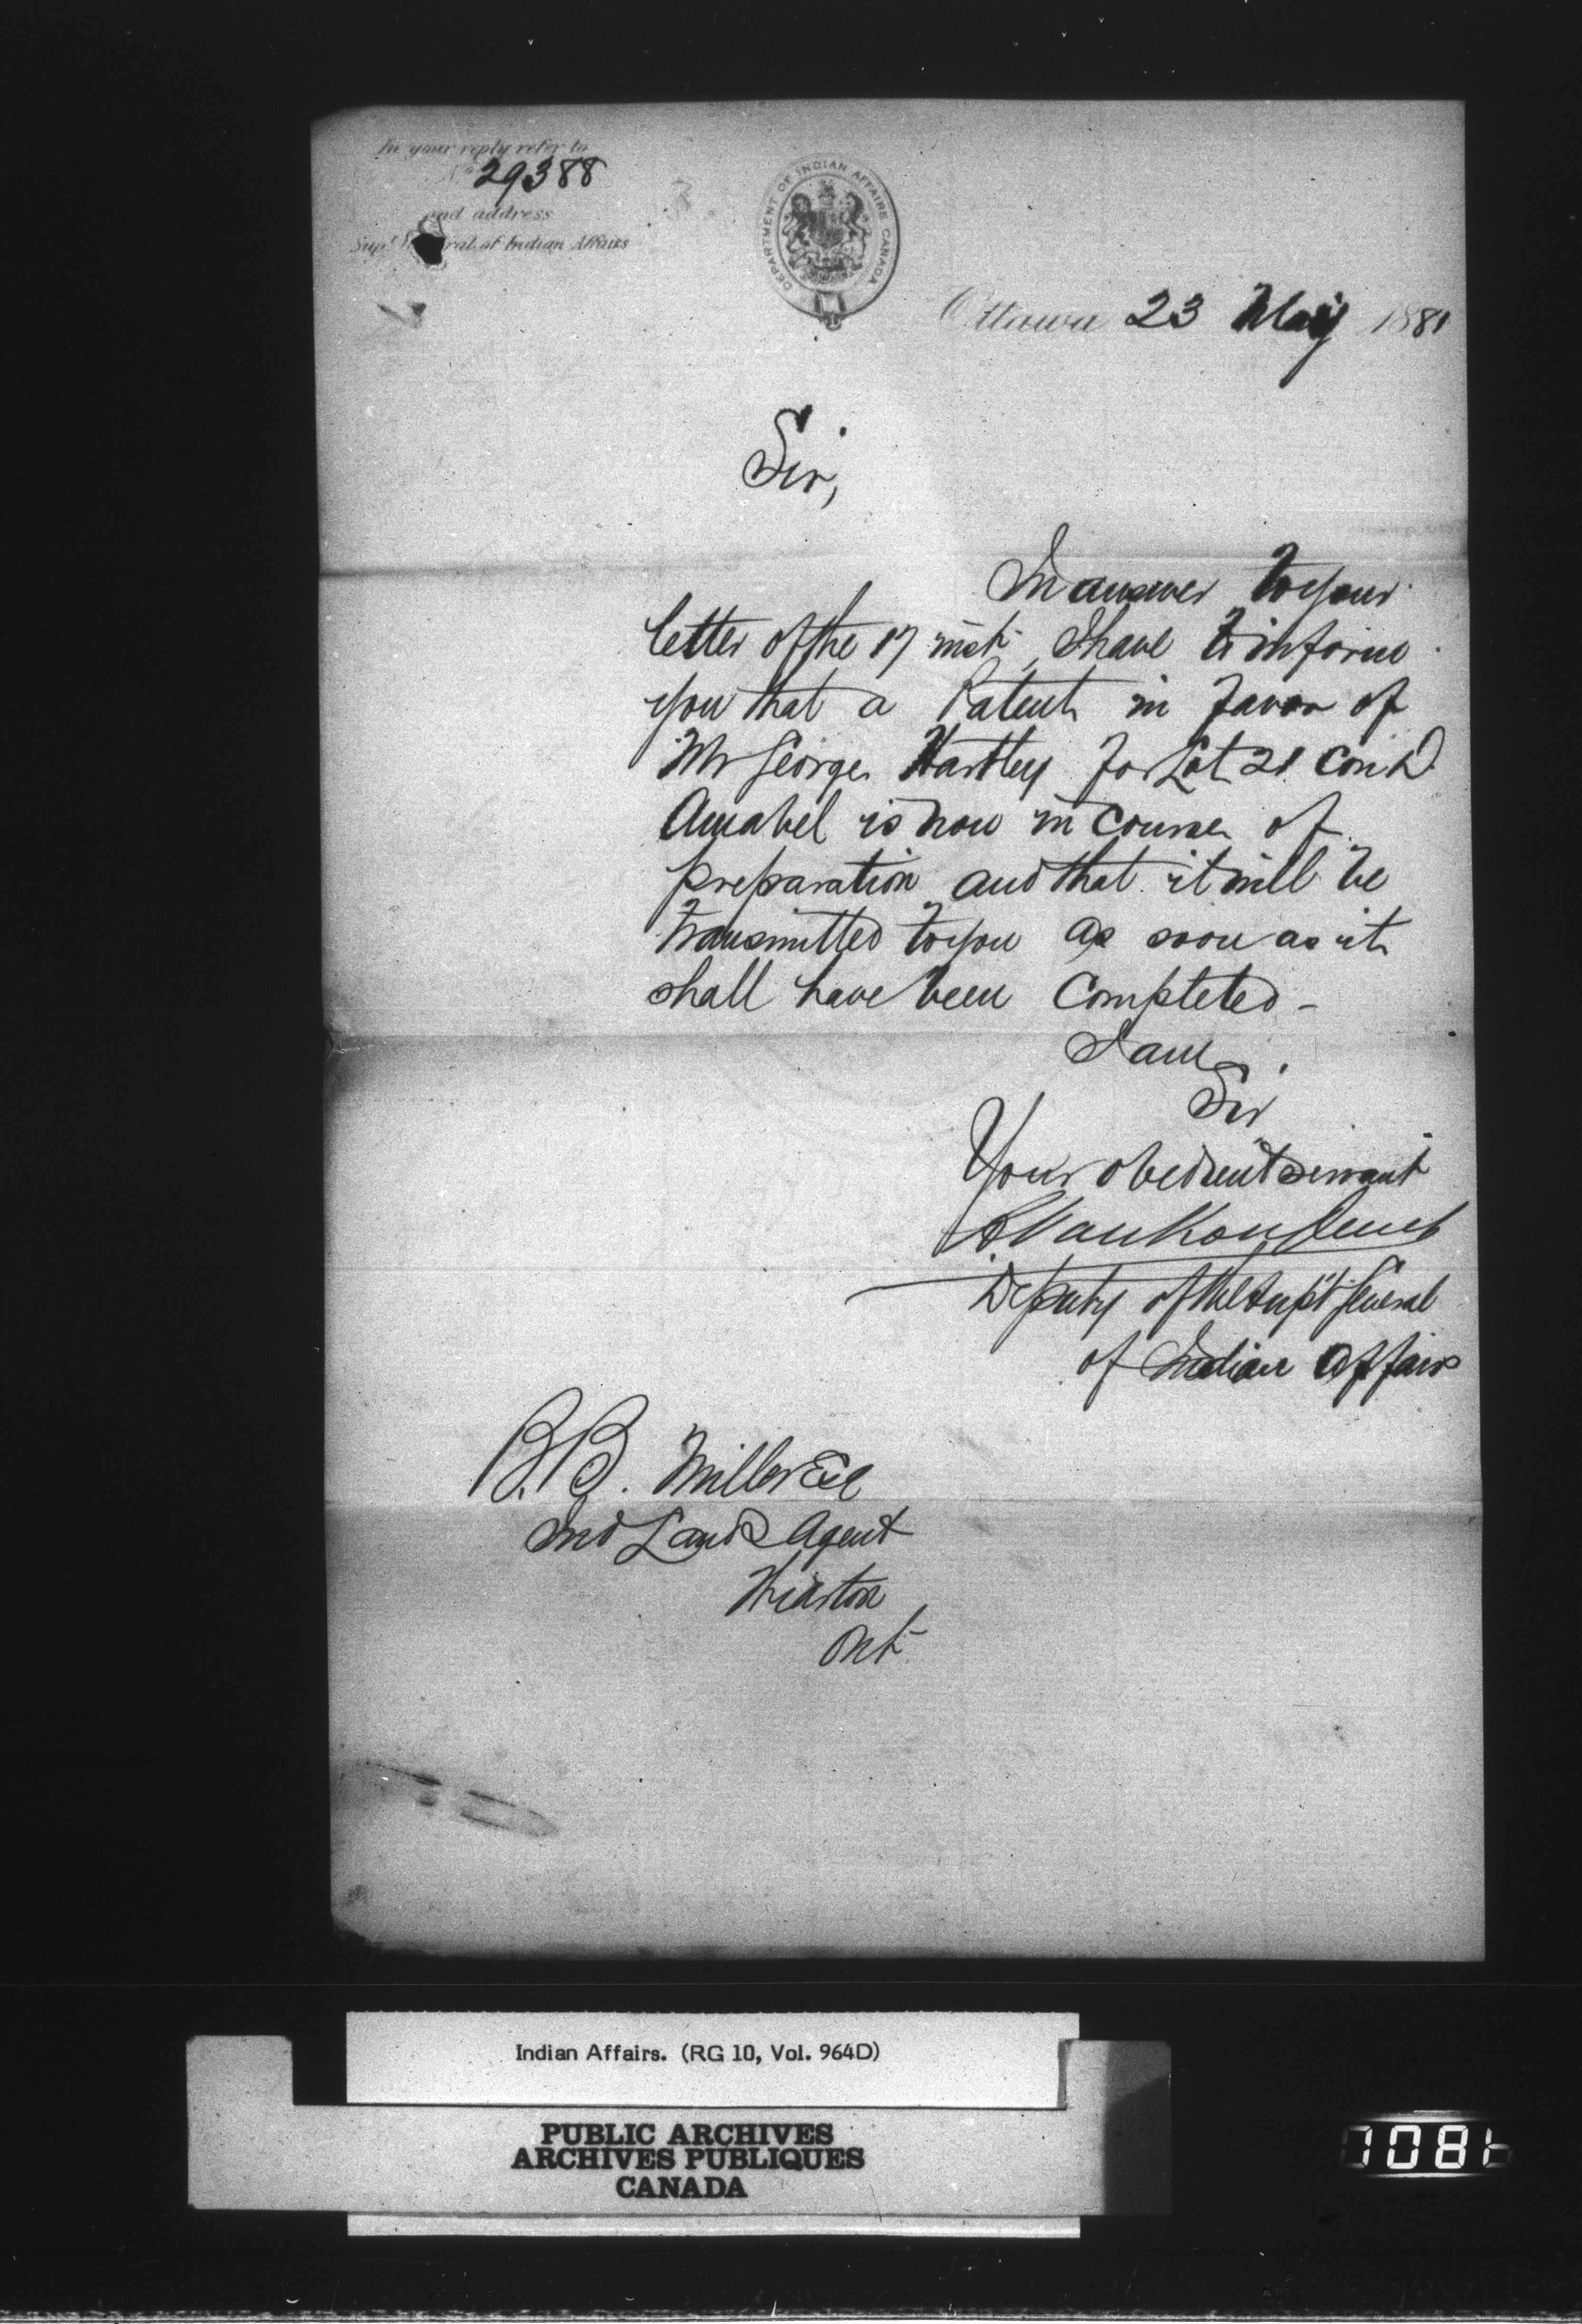 In your reply refer to
No 29388
and address
Supt. General of Indian Affairs
DEPARTMENT OF INDIAN AFFAIRS CANADA
Ottawa 23 May 1881
Sir,
In answer to your
letter of the 17 inst, I have to inform
you that a Patent in favor of
Mr George Hartley for Lot 21 Con D
Amabel is now in course of
preparation and that it will be
transmitted to you as soon as it
shall have been completed -
I am,
Sir
Your obedient servant
L Vankoughnet
Deputy of the Supt General
of Indian Affairs
B.B. Miller Esq
Ind Land Agent
Wiarton
Ont
Indian Affairs. (RG 10, Vol. 964D)
PUBLIC ARCHIVES
ARCHIVES PUBLIQUES
CANADA